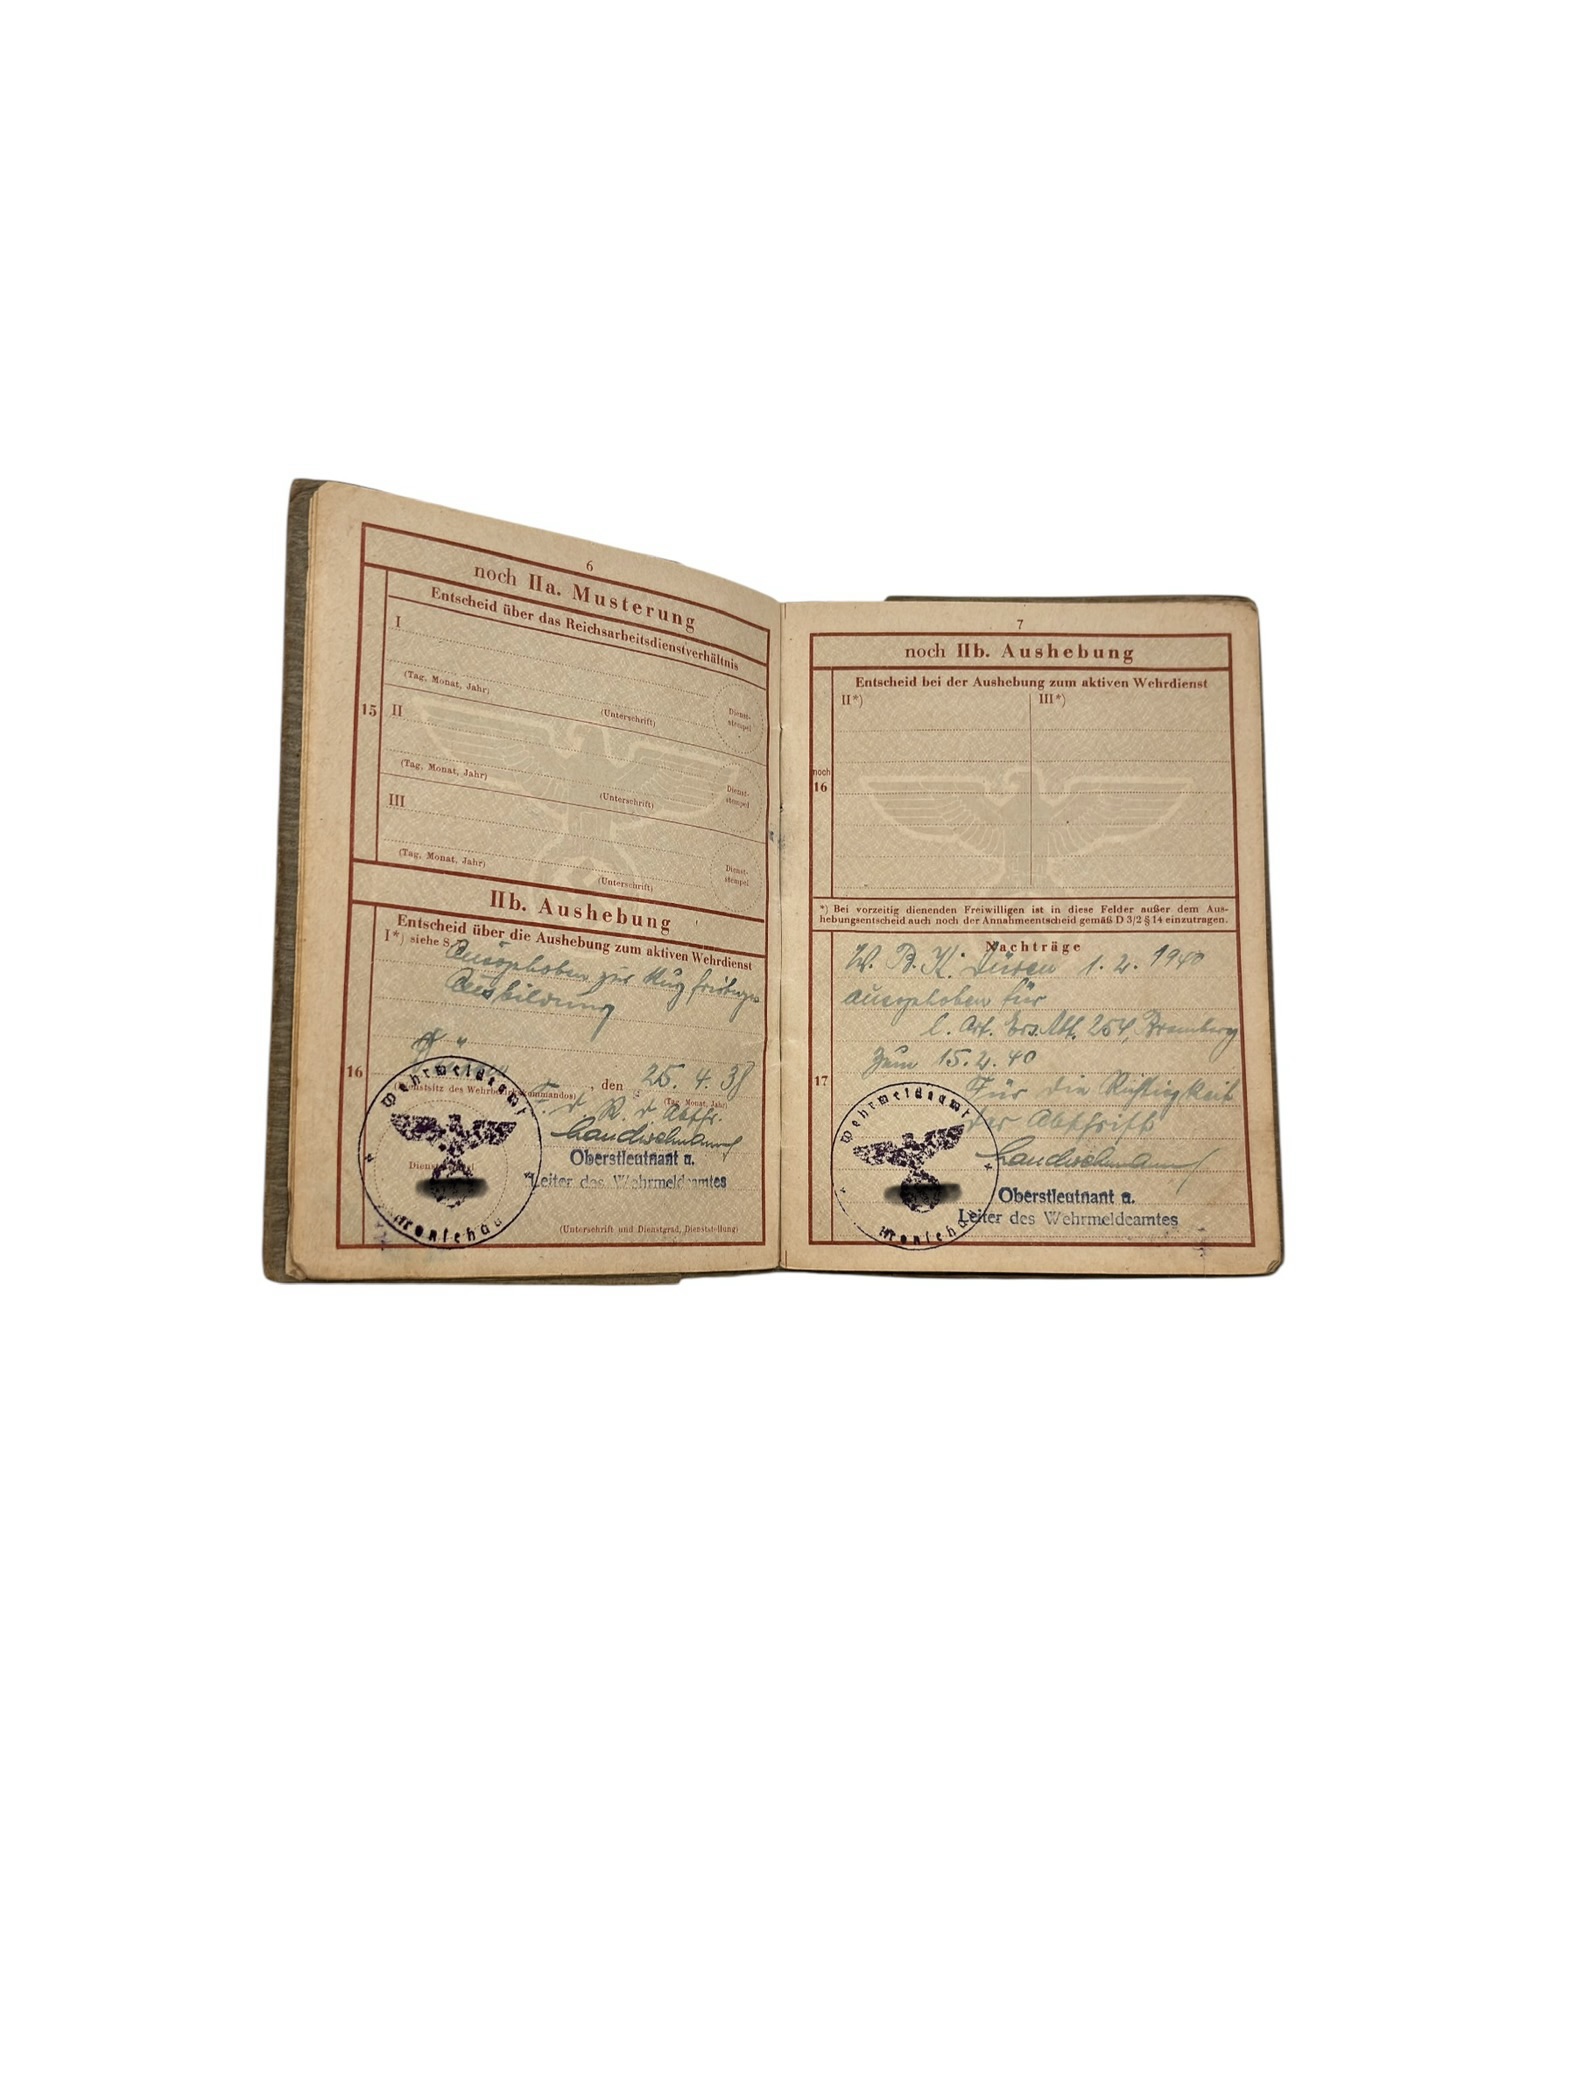 6
noch IIa. Musterung
Entscheid über das Reichsarbeitsdienstverhältnis
15
I
(Tag, Monat, Jahr)
(Unterschrift)
Dienst-
stempel
II
(Tag, Monat, Jahr)
(Unterschrift)
Dienst-
stempel
III
(Tag, Monat, Jahr)
(Unterschrift)
Dienst-
stempel
IIb. Aushebung
Entscheid über die Aushebung zum aktiven Wehrdienst
16
I*) siehe S.
Ausgehoben zur kurzfristigen
Ausbildung
(Dienstsitz des Wehrbezirkskommandos)
, den 25. 4. 38
(Tag, Monat, Jahr)
F. d. R. d. Abschr.
Oberstleutnant a.
Leiter des Wehrmeldeamtes
(Unterschrift und Dienstgrad, Dienststellung)
Wehrmeldeamt
Monschau
7
noch IIb. Aushebung
Entscheid bei der Aushebung zum aktiven Wehrdienst
noch
16
II*)
III*)
*) Bei vorzeitig dienenden Freiwilligen ist in diese Felder außer dem Aus-
hebungsentscheid auch noch der Annahmeentscheid gemäß D 3/2 § 14 einzutragen.
17
Nachträge
W. B. K. Düren 1. 2. 1940
ausgehoben für
l. Art. Ers. Abt. 254, Bromberg
zum 15. 2. 40
Für die Richtigkeit
der Abschrift
Oberstleutnant a.
Leiter des Wehrmeldeamtes
Wehrmeldeamt
Monschau